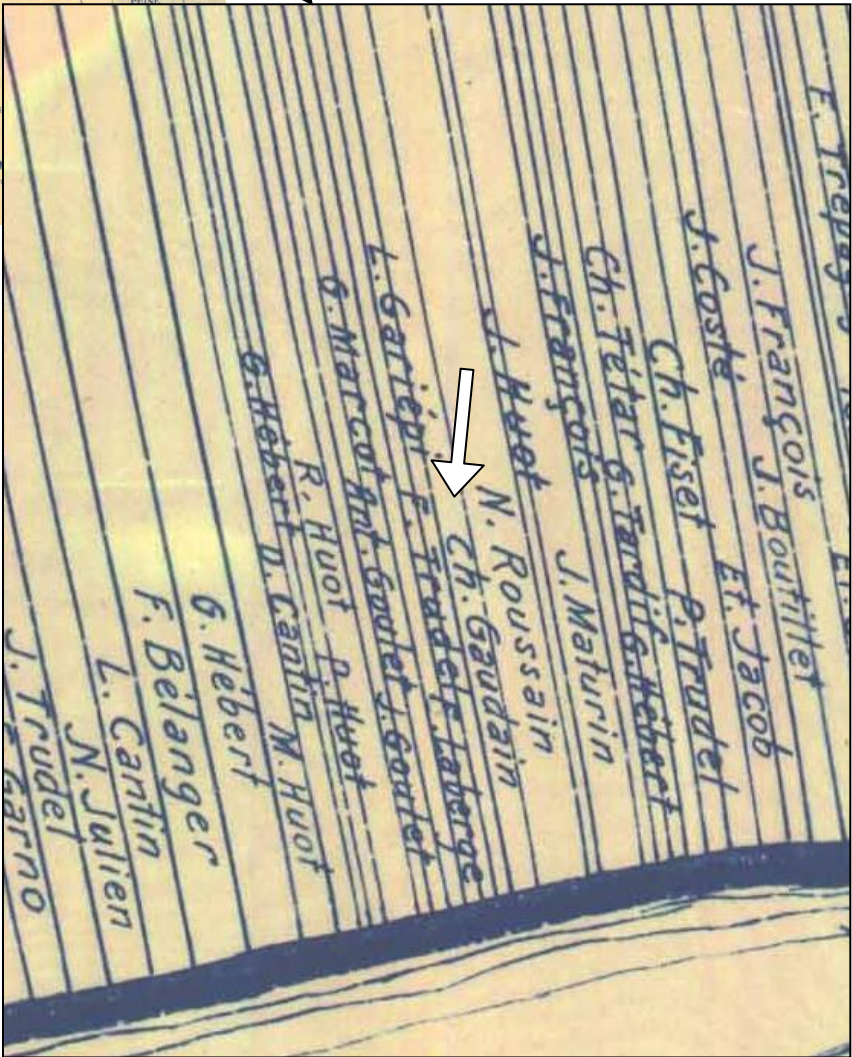 J. François J. Boutillet
J. Costé Et. Jacob
Ch. Fiset P. Trudel
Ch. Tétar G. Tardif G. Hébert
J. François J. Maturin
J. Huot N. Roussain
Ch. Gaudain
L. Gariépi F. Trudel F. Laberge
G. Marcot Ant. Goulet J. Goulet
R. Huot P. Huot
G. Hébert D. Cantin M. Huot
G. Hébert
F. Bélanger
L. Cantin
N. Julien
J. Trudel
Garno